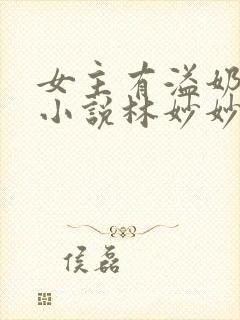 女主有溢奶
小说林妙妙
侯磊